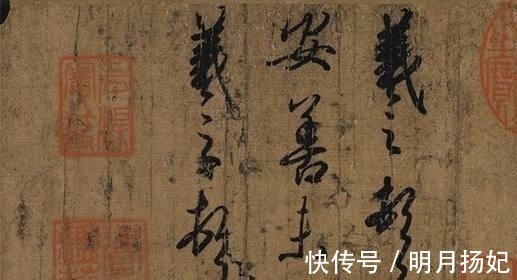 羲之頓
安善未
羲之頓
快传号 / 明月扬妃